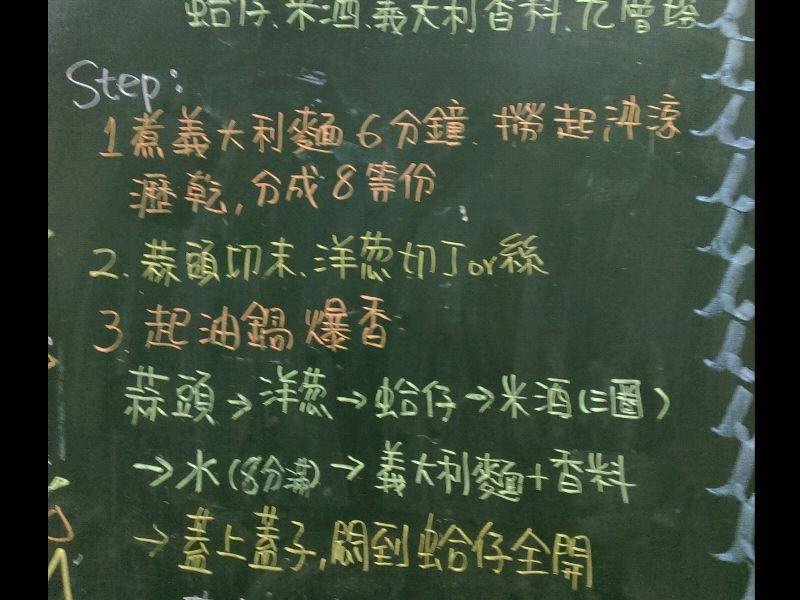 蛤仔、米酒、義大利香料、九層塔
Step:
1 煮義大利麵 6分鐘、撈起沖涼
瀝乾,分成8等份
2. 蒜頭切末、洋葱切丁or絲
3. 起油鍋爆香
蒜頭→洋葱→蛤仔→米酒(三圈)
→水(8分滿)→義大利麵+香料
→蓋上蓋子,悶到蛤仔全開